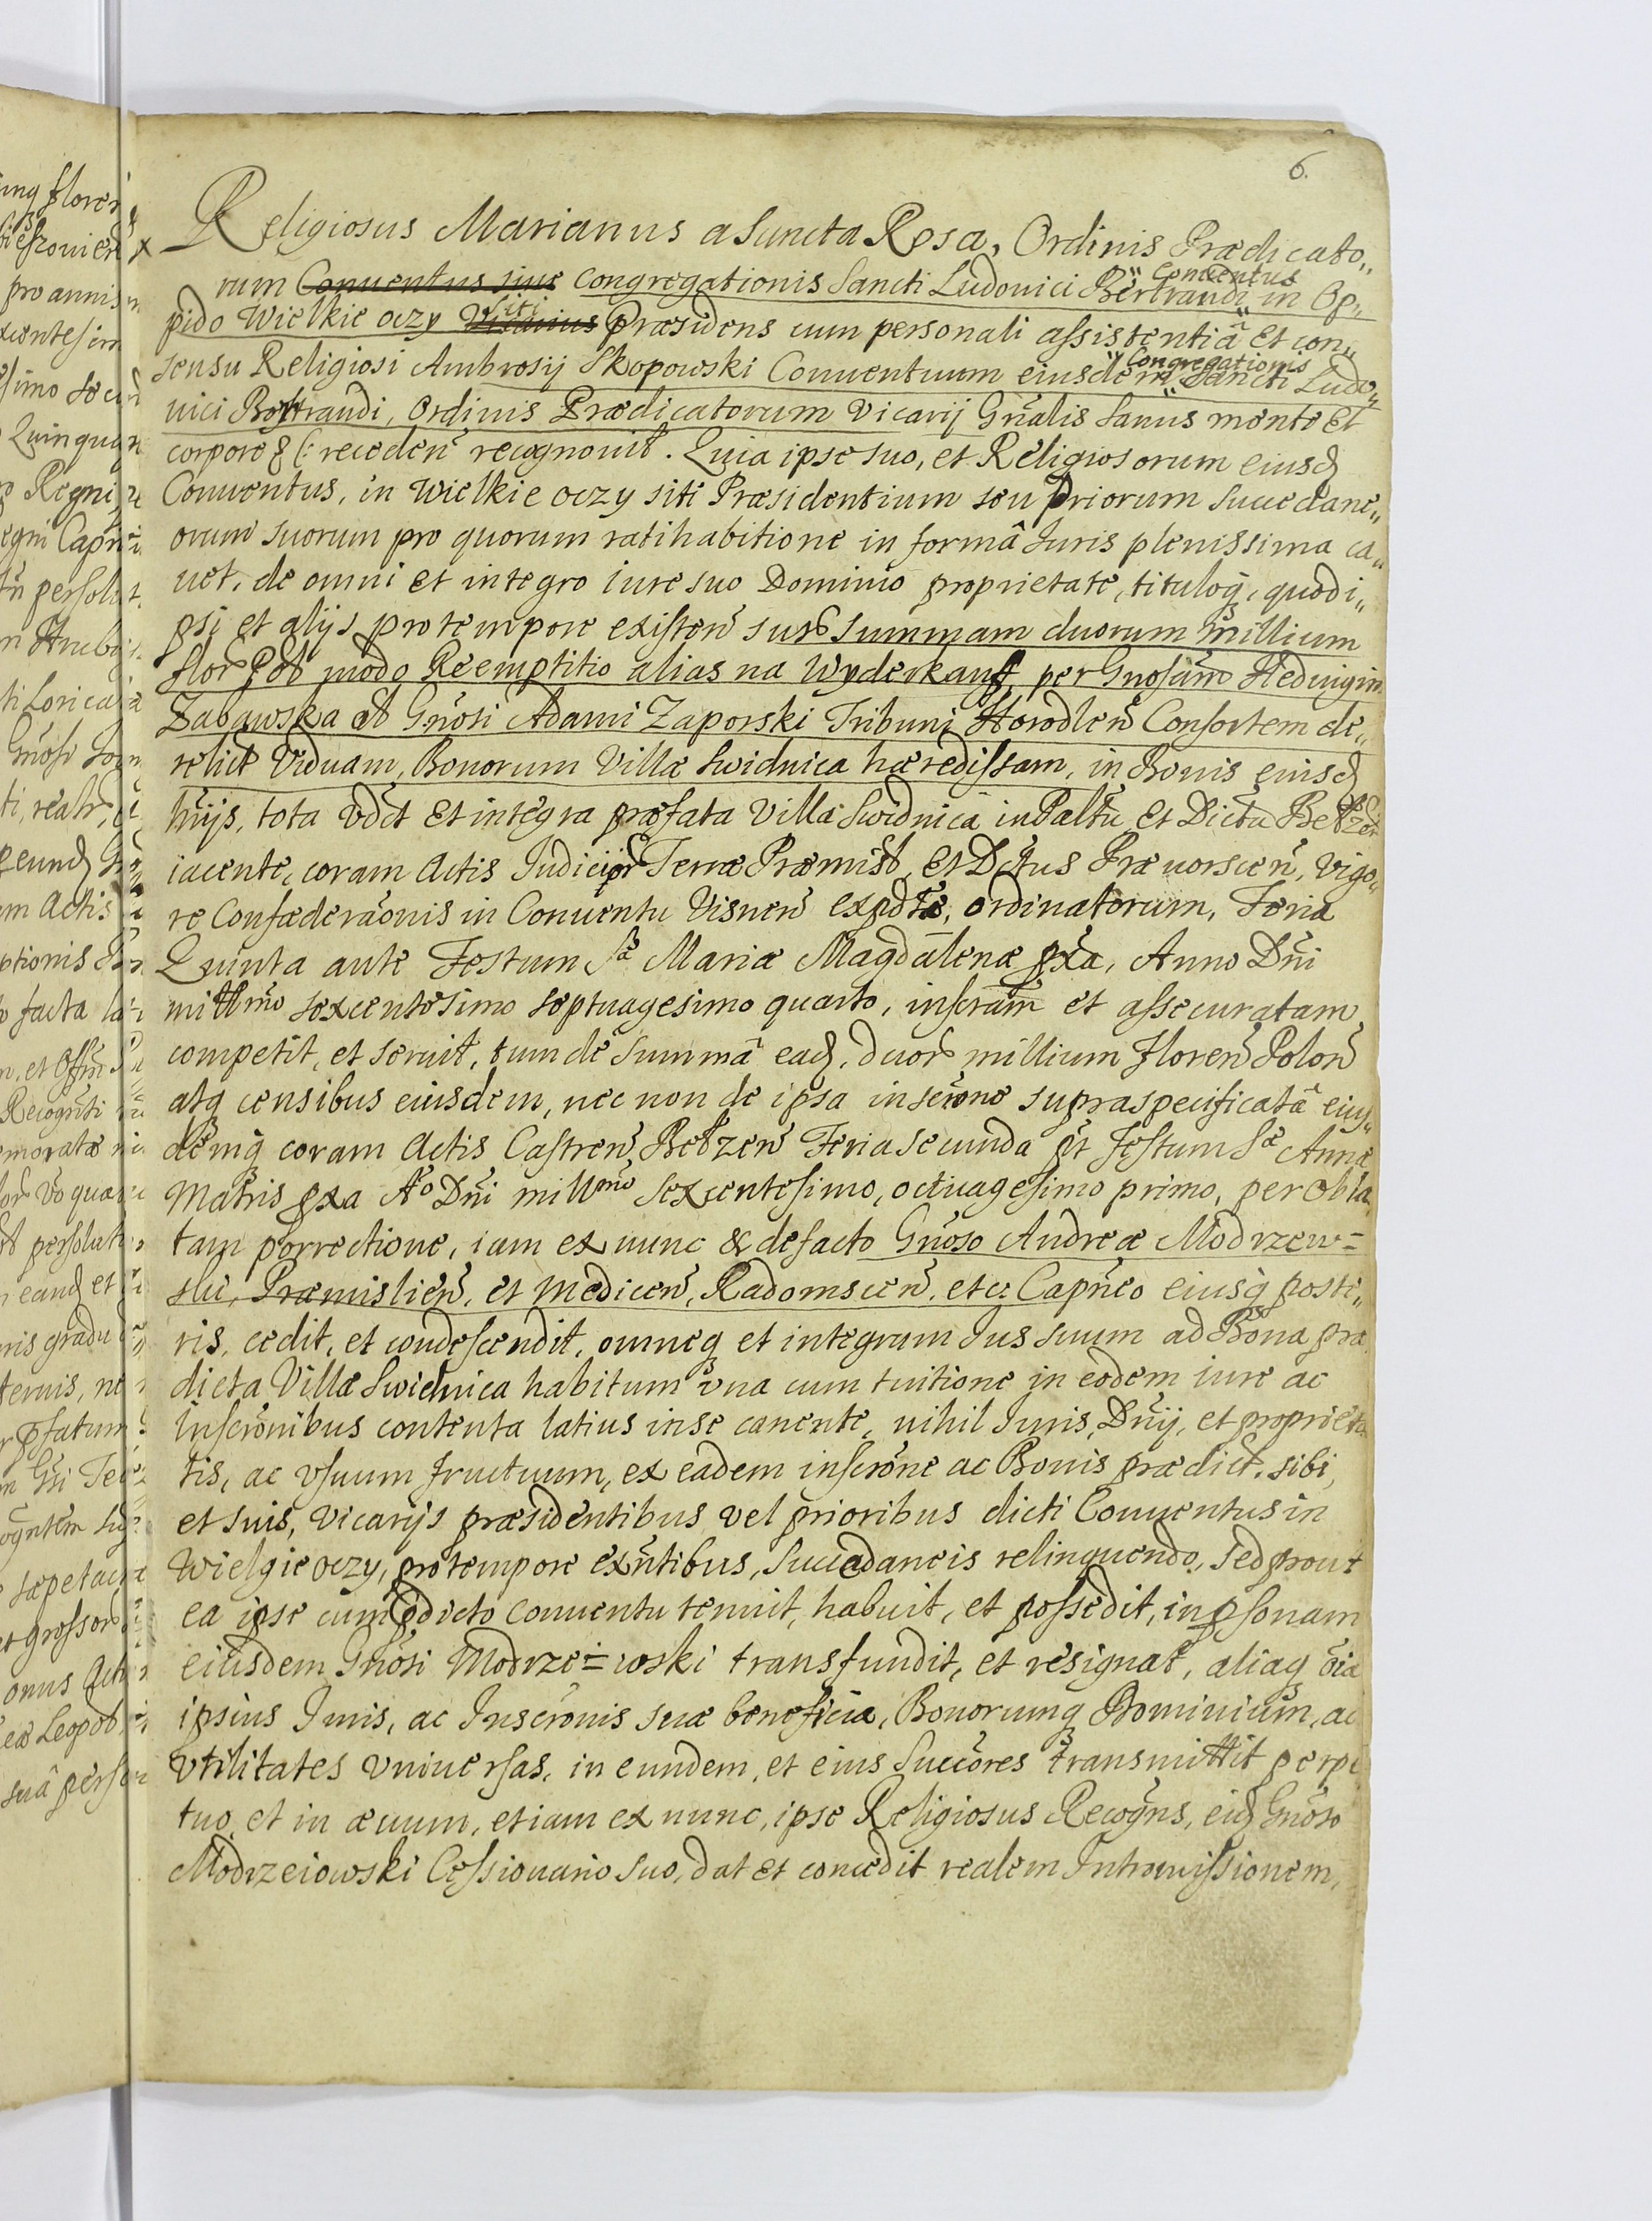 6.
Religiosus Marianus a Sancta Rosa, Ordinis Prædicato„
rum Conuentus siue Congregationis Sancti Ludouici Bertrandi Conuentus in Op„
pido Wielkie oczy Vicarius siti Præsidens cum personali assistentiâ et con„
sensu Religiosi Ambrosij Skopowski Conuentuum eiusdem Congregationis Sancti Ludo„
uici Bertrandi, Ordinis Prædicatorum Vicarij Gñalis Sanus mente et
corpore (: receden̄ recognouit. Quia ipse suo, et Religiosorum eiusd
Conuentus, in Wielkie oczy siti Præsidentium seu Priorum Succedane„
orum suorum pro quorum ratihabitione in formâ Iuris plenissima ca„
uet, de omni et integro iure suo Dominio proprietate, tituloq, quod i„
psi et alijs pro tempore existen̄ super Summam duorum millium
flor Pol modo Reemptitio alias na Wyderkauff, per Gnosam Heduigim
Zabawska Gñosi Adami Zaporski Tribuni Horodlen̄ Consortem de„
relict Viduam, Bonorum Villæ Swidnica hæredissam, in Bonis eiusd
huijs, tota vdt et integra præfata Villa Swidnica in Paltu et Dictu Betzen
iacente, coram Actis Iudicior Terræ Præmisl, et Dctus Præuorscen̄, vigo„
re Confæderãonis in Conuentu Visnen̄ expdte, ordinatorum, Feria
Quinta ante Festum Sæ Mariæ Magdalenæ pxa, Anno Dñi
millmo sexcentesimo septuagesimo quarto, inscram̃ et assecuratam
competit, et seruit, tum de Summâ ead, duor millium Floren̄ Polon̄
atq censibus eiusdem, nec non de ipsa inscr̃one supraspecificatâ eius„
demq coram Actis Castren̄ Betzen̄ Feria secunda pt Festum Sæ Annæ
Matris pxa Ao Dñi millmo sexcentesimo, octuagesimo primo, per obla„
tam porrectione, iam ex nunc & defacto Gñoso Andreæ Modrzew=
ski, Præmislien̄, et Medicen̄, Radomscen̄, etc: Capñeo eiusq poste„
ris, cedit, et condescendit, omneq et integrum Ius suum ad Bona præ
dicta Villæ Swidnica habitum vna cum tuitione in eodem iure ac
Inscr̃onibus contenta latius in se canente, nihil Iuris, Dñij, et proprieta
tis, ac vsuum fructuum, ex eadem inscr̃one ac Bonis prædict. sibi,
et suis, Vicarijs præsidentibus vel prioribus dicti Conuentus in
Wielgie oczy, pro tempore exñtibus, Succedaneis relinquendo, sed prout
ea ipse cum pdicto Conuentu tenuit, habuit, et possedit, in psonam
eiusdem Gñosi Modrze=iowski transfundit, et resignat, aliaq õia
ipsius Iuris, ac Inscr̃onis suæ beneficia, Bonorumq Dominium, ac
vtilitates vniuersas, in eundem, et eius Succ̃ores transmittit perpe
tuo et in æuum, etiam ex nunc, ipse Religiosus Recogns, eid Gñoso
Modrzeiowski Cessionario suo, dat et concedit realem Intromissionem,